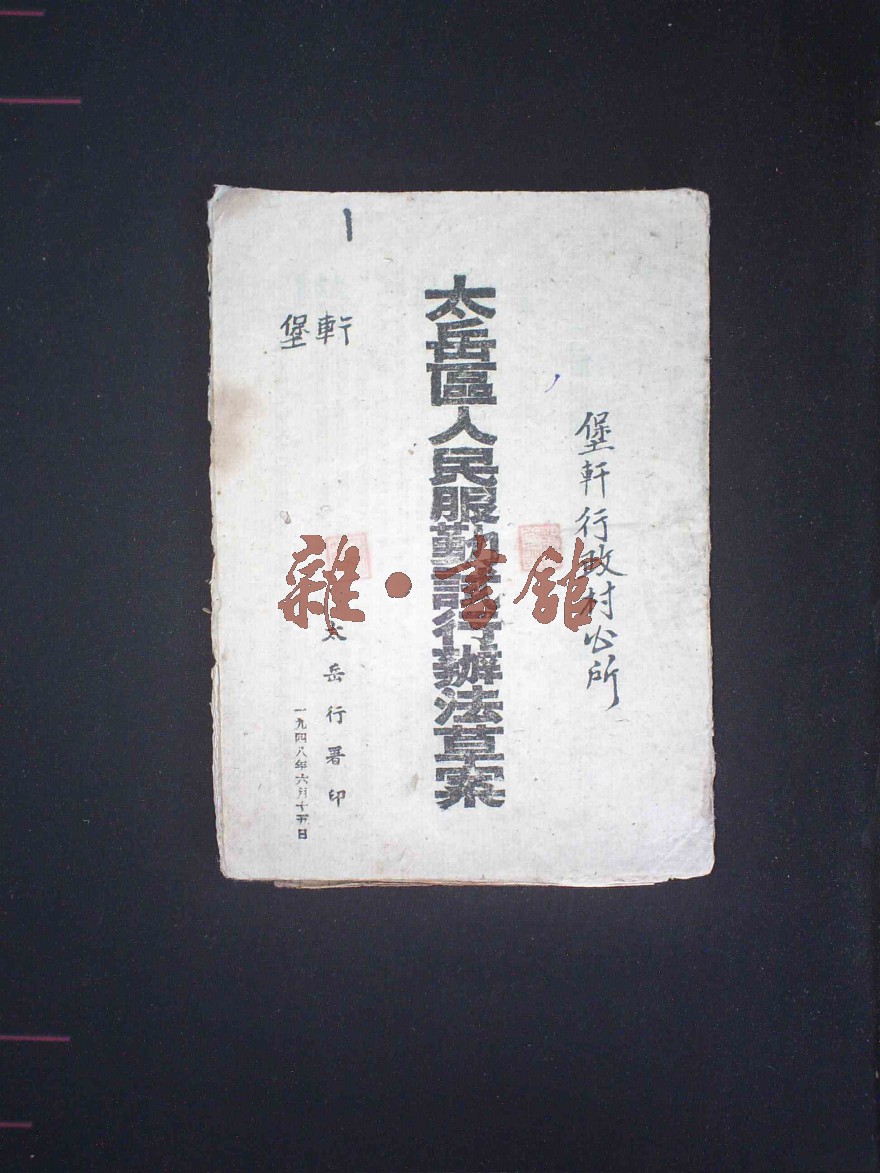 堡軒行政村公所
太岳區人民服勤試行辦法草案
軒
堡
太岳行署印
一九四八年六月十五日
雜·書館